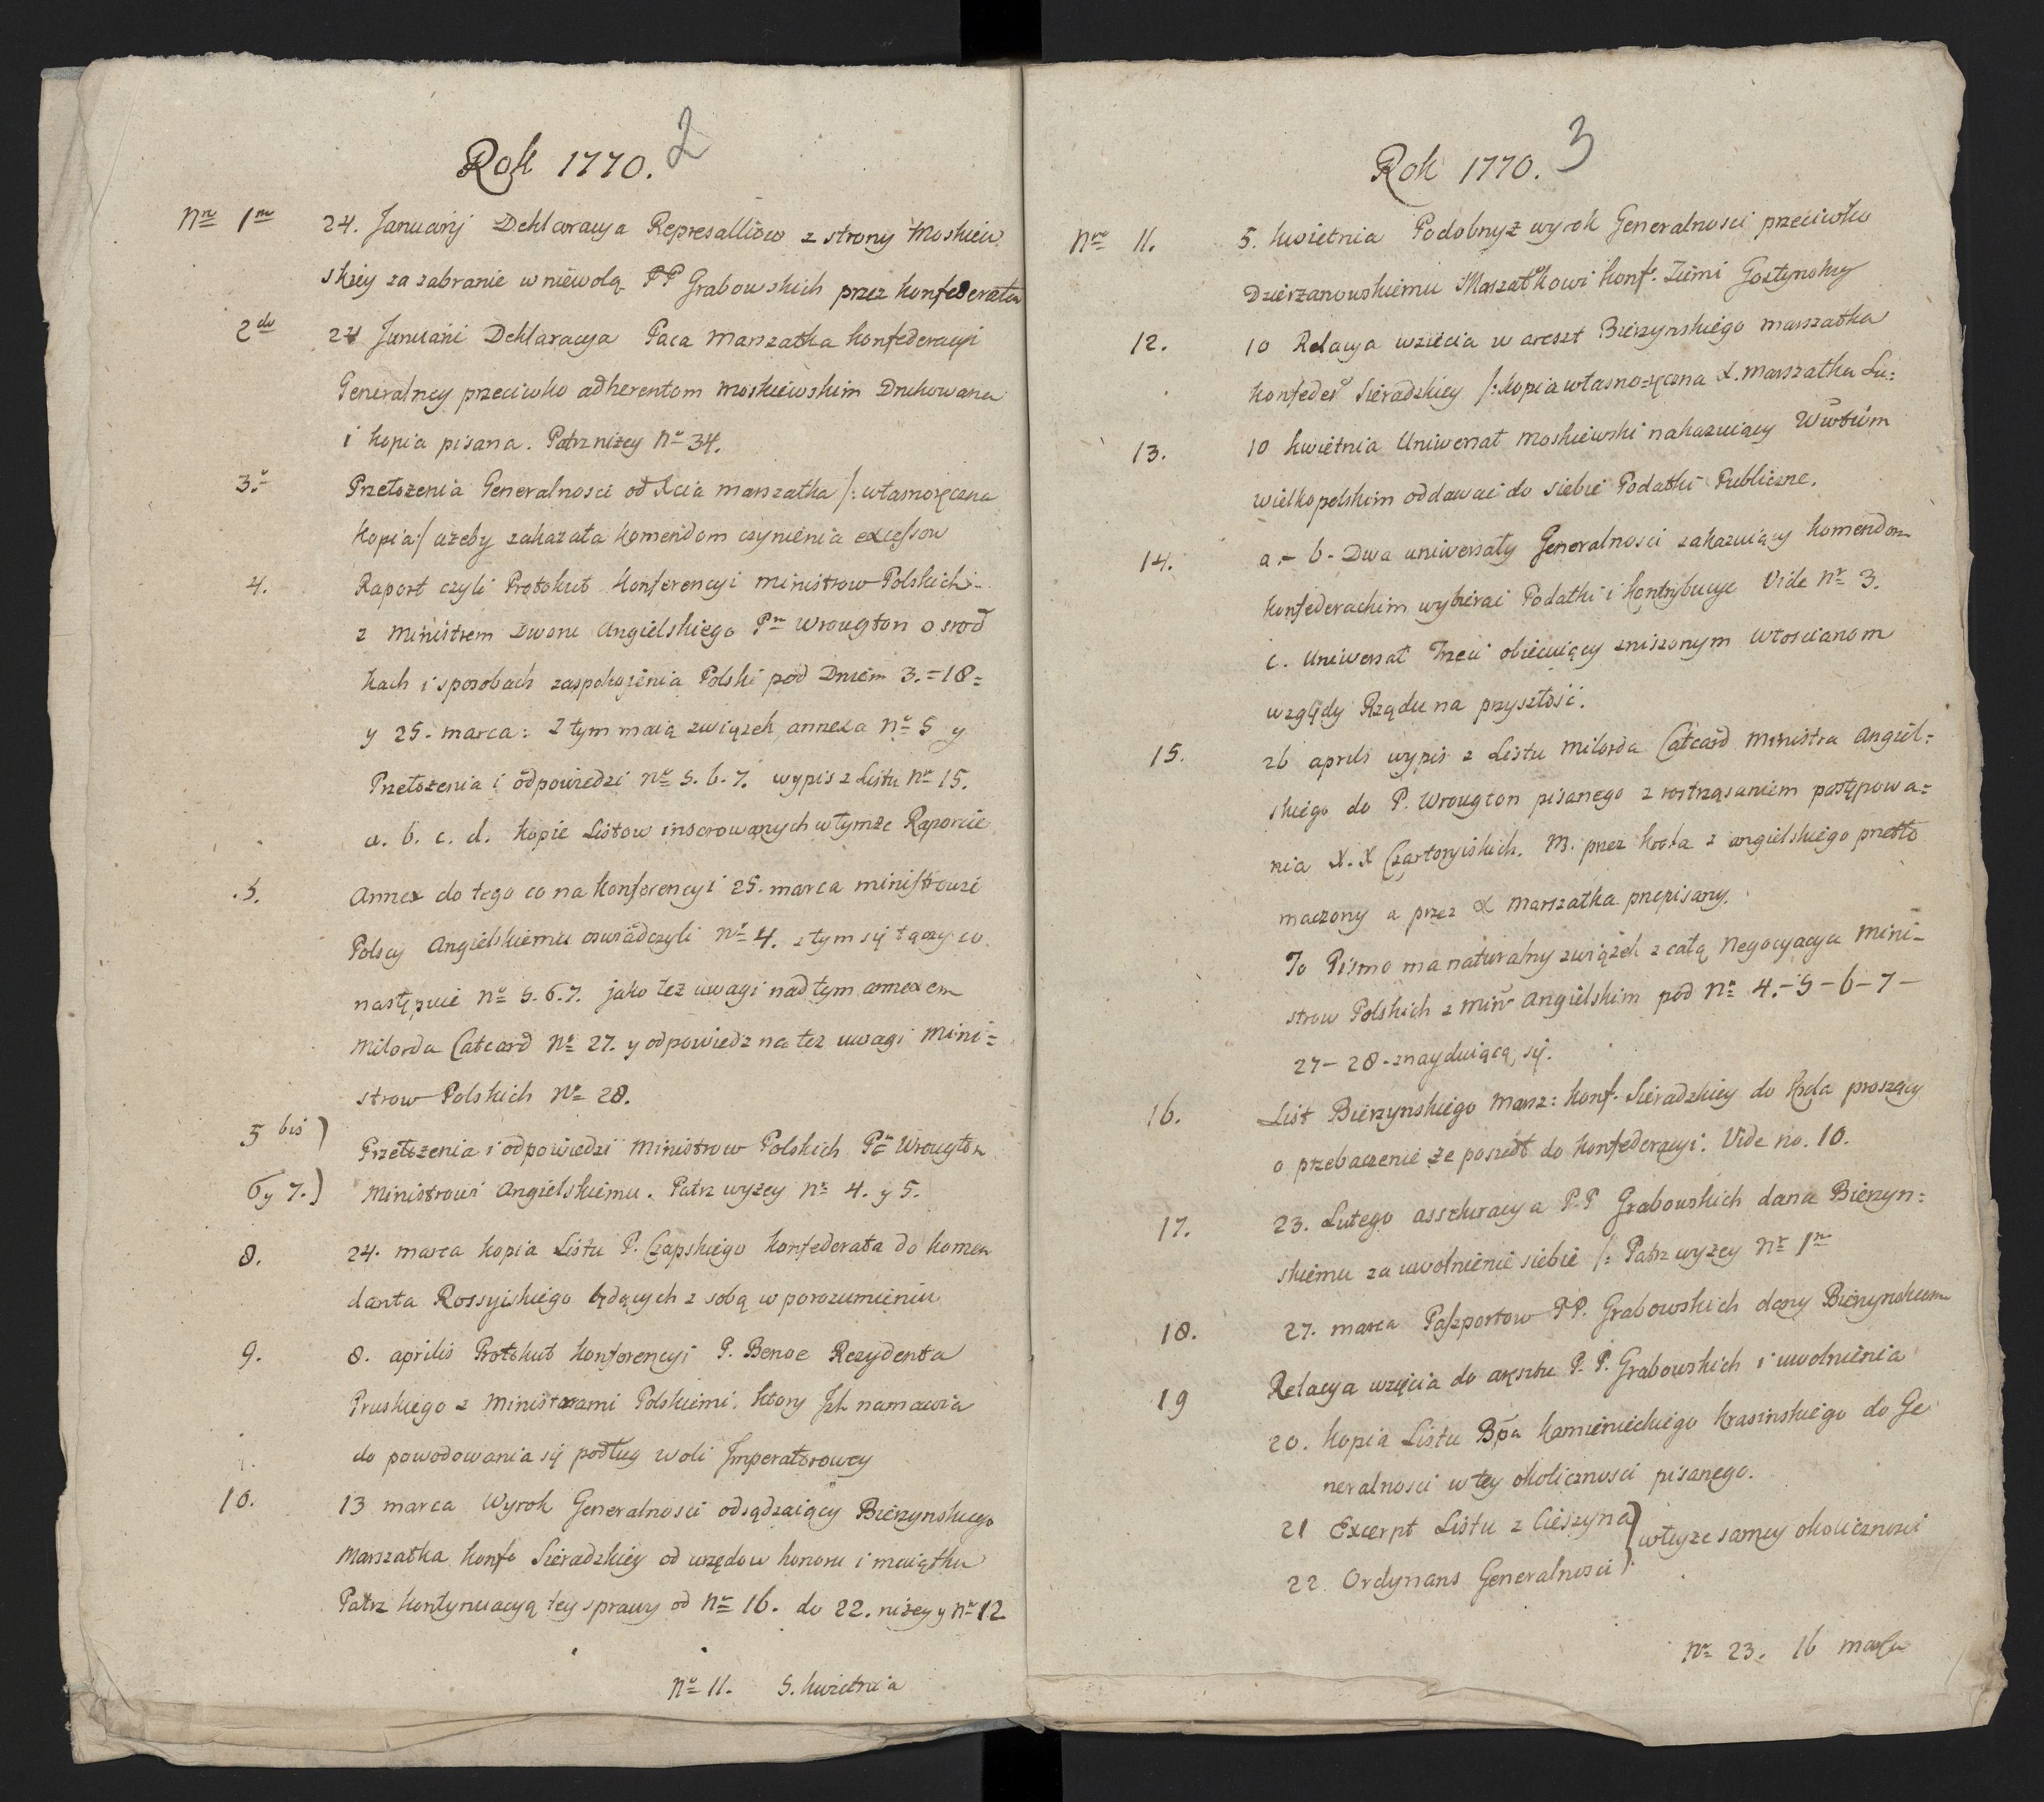 2
Rok 1770.
Nro 1mo 24. Januarij Deklaracya Represalliow z strony Moskiew
skiey za zabranie w niewolą PP Grabowskich przez konfederatow
2do 24 Januarii Deklaracya Paca Marszałka konfederacyi
Generalney przeciwko adherentom moskiewskim Drukowana
i kopia pisana. Patrz niżey Nro 34.
3. Przełożenia Generalnosci od Xcia marszałka /: własnoręczna
kopia:/ ażeby zakazała komendom czynienia excessow
4. Raport czyli Protokuł konferencyi ministrow Polskich
z Ministrem Dworu Angielskiego Pm Wrougton o srod
kach i sposobach zaspokojenia Polski pod Dniem 3.=18=
y 25. marca: Z tym maią związek annexa Nro 5 y
Przełożenia i odpowiedzi Nro 5. 6. 7. wypis z Listu Nro 15.
a. b. c. d. kopie Listow inserowanych w tymże Raporcie
.5. Annex do tego co na konferencyi 25. marca ministrowie
Polscy Angielskiemu oswiadczyli Nro 4. z tym się łączy co
następuie Nro 5. 6. 7. jako też uwagi nad tym annexem
Milorda Catcard Nro 27. y odpowiedz na też uwagi Mini=
strow Polskich Nro 28.
5 bis) Przełożenia i odpowiedzi Ministrow Polskich Pu Wrougton
6 y 7.) Ministrowi Angielskiemu. Patrz wyżey Nro 4. y 5.
8. 24. marca kopia Listu P. Czapskiego konfederata do komen
danta Rossyiskiego będących z sobą w porozumieniu
9. 8. aprilis Protokuł konferencyi P. Benoe Rezydenta
Pruskiego z Ministrami Polskiemi. ktory Jch namawia
do powodowania się podług woli Jmperatorowey
10. 13 marca Wyrok Generalnosci odsądzaiący Bierzynskiego
Marszałka konfo Sieradzkiey od urzędow honoru i maiątku
Patrz kontynuacyą tey sprawy od Nro 16. do 22. niżey y Nro 12
Nro 11. 5. kwietnia
3
Rok 1770.
Nro 11. 5. kwietnia Podobnyż wyrok Generalnosci przeciwko
Dzierzanowskiemu Marszałkowi konf. Ziemi Gostynskiy
12. 10 Relacya wzięcia w areszt Bierzynskiego marszałka
konfeder Sieradzkiey /: kopia własnoręczna X. marszałka Lu:
13. 10 kwietnia Uniwersał moskiewski nakazuiący Wwtwom
wielkopolskim oddawać do siebie Podatki Publiczne.
14. a.- b- Dwa uniwersały Generalnosci zakazuiący komendom
konfederackim wybierać Podatki i kontrybucye Vide Nro 3.
c. Uniwersał Trzeci obiecuiący zniszonym włoscianom
względy Rządu na przyszłość.
15. 26 aprils wypis z Listu milorda Catcard Ministra Angiel=
skiego do P. Wrougton pisanego z roztrząsaniem postępowa=
nia X. X Czartoryiskich. M. przez krola z angielskiego przetło
maczony a przez X Marszałka przepisany.
To Pismo ma naturalny związek z całą negocyacya Mini-
strow Polskich z Min Angielskim pod Nro 4.-5-6-7-
27-28-znayduiącą się.
16. List Bierzynskiego Marsz: konf. Sieradzkiey do krla proszący
o przebaczenie że poszedł do konfederacyi. Vide no. 10.
17. 23. Lutego assekuracya P.P Grabowskich dana Bierzyn=
skiemu za uwolnienie siebie /: Patrz wyżey Nro 1mo
18. 27. marca Paszportow PP. Grabowskich dany Bierzynskiemu
19 Relacya wzięcia do aresztu P. P. Grabowskich i uwolnienia
20. kopia Listu Bpa kamienieckiego krasinskiego do Ge
neralnosci w tey okolicznosci pisanego.
21 Excerpt Listu z Cieszyna) w teyże samey okolicznosci
22. Ordynans Generalnosci)
Nro 23. 16 marca